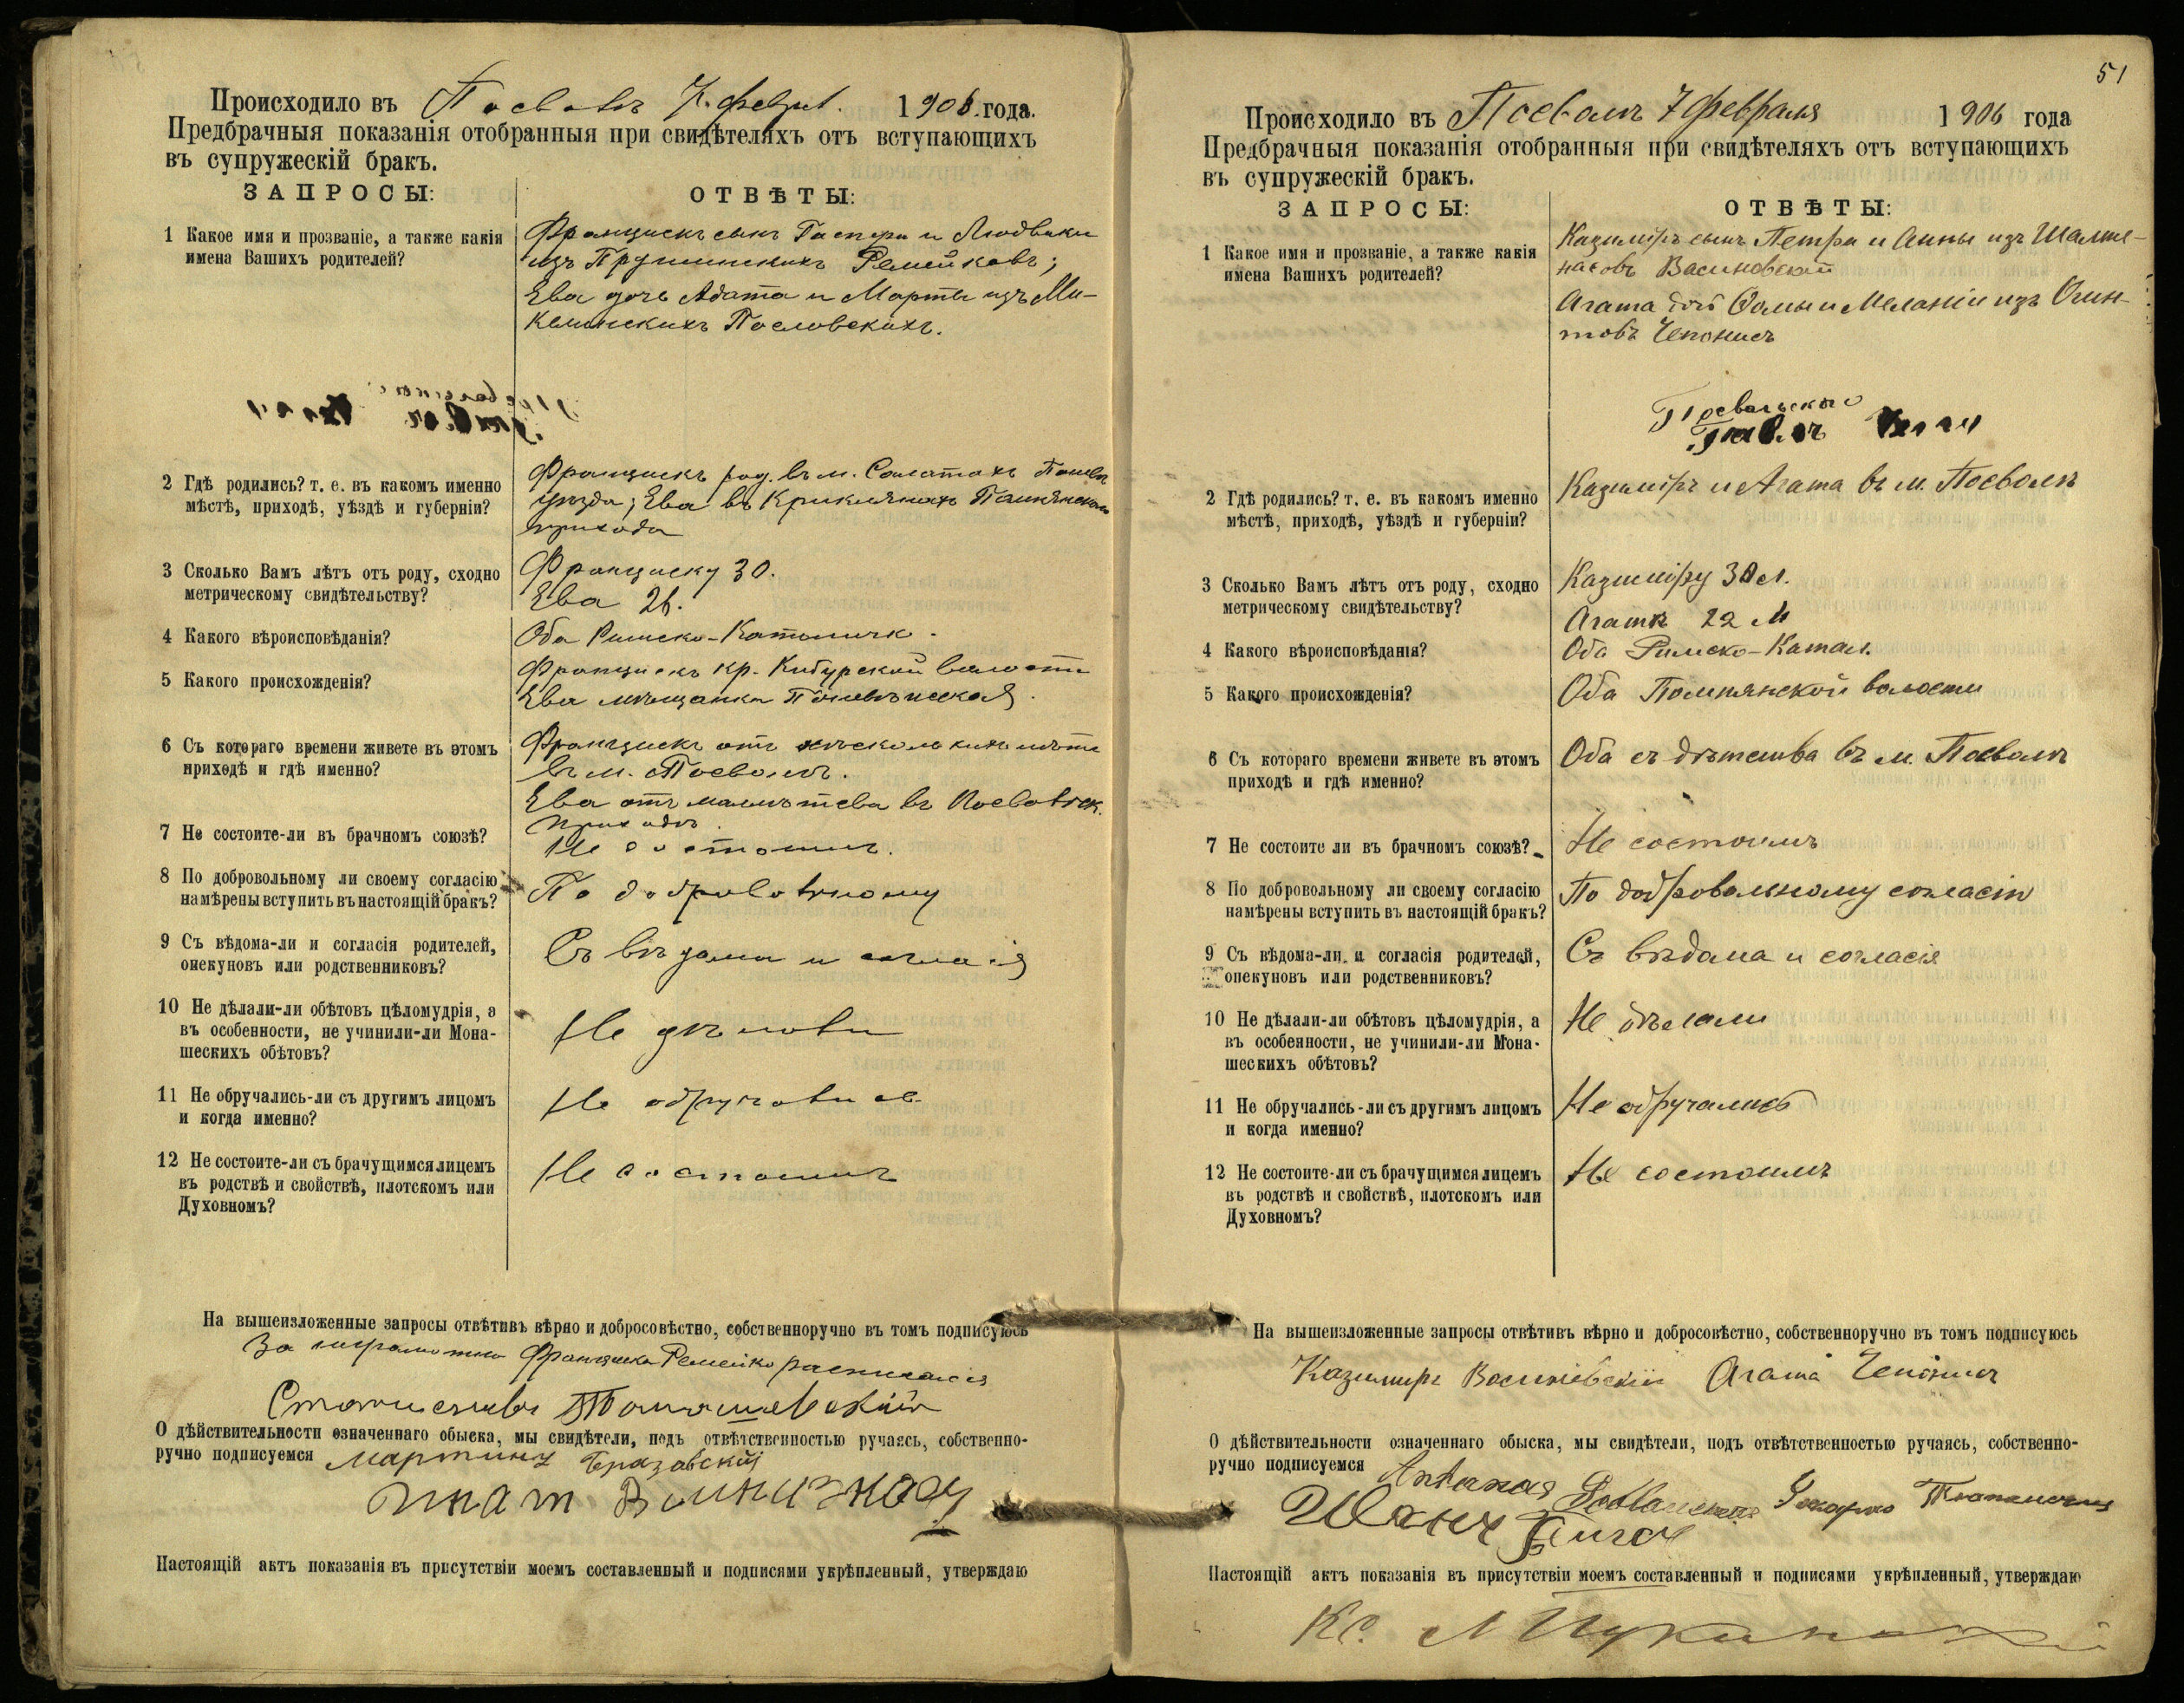 Происходило въ Посволѣ 7. февр. 1906. года.
Предбрачныя показанія отобранныя при свидѣтеляхъ отъ вступающихъ
въ супружескій бракъ.
ЗАПРОСЫ:
ОТВѢТЫ:
1 Какое имя и прозваніе, а также какія
имена Вашихъ родителей?
Францискъ сынъ Гаспера и Людвики
изъ Ремейковъ;
Ева дочь Адама и Марты изъ Ми-
Пословскихъ.
2 Гдѣ родились? т. е. въ какомъ именно
мѣстѣ, приходѣ, уѣздѣ и губерніи?
Францискъ род. въ м. Салатахъ Понев.
уѣзда; Ева въ
прихода
3 Сколько Вамъ лѣтъ отъ роду, сходно
метрическому свидѣтельству?
Франциску 30.
Ева 26.
4 Какого вѣроисповѣданія?
Оба Римско-Католич.
5 Какого происхожденія?
Францискъ кр. Кибурской волости
Ева мѣщанка Поневѣжская.
6 Съ котораго времени живете въ этомъ
приходѣ и гдѣ именно?
Францискъ отъ нѣсколькихъ лѣтъ
въ м. Посволѣ.
Ева отъ малѣтства въ Посвольск.
приходѣ.
7 Не состоите-ли въ брачномъ союзѣ?
Не состоимъ.
8 По добровольному ли своему согласію
намѣрены вступить въ настоящій бракъ?
По добровольному
9 Съ вѣдома-ли и согласія родителей,
опекуновъ или родственниковъ?
Съ вѣдома и согласія
10 Не дѣлали-ли обѣтовъ цѣломудрія, а
въ особенности, не учинили-ли Мона-
шескихъ обѣтовъ?
Не дѣлали
11 Не обручались-ли съ другимъ лицомъ
и когда именно?
Не обручались
12 Не состоите-ли съ брачущимся лицемъ
въ родствѣ и свойствѣ, плотскомъ или
Духовномъ?
Не состоимъ
На вышеизложенные запросы отвѣтивъ вѣрно и добросовѣстно, собственноручно въ томъ подписуюсь
За неграмотн. Франциска Ремейко расписался
Станиславъ Томашевскій
О дѣйствительности означеннаго обыска, мы свидѣтели, подъ отвѣтственностью ручаясь, собственно-
ручно подписуемся Мартинъ Бразовскій
Настоящій актъ показанія въ присутствіи моемъ составленный и подписями укрѣпленный, утверждаю
51
Происходило въ Посволѣ 7 февраля 1906 года
Предбрачныя показанія отобранныя при свидѣтеляхъ отъ вступающихъ
въ супружескій бракъ.
ЗАПРОСЫ:
ОТВѢТЫ:
1 Какое имя и прозваніе, а также какія
имена Вашихъ родителей?
Казимиръ сынъ Петра и Анны изъ
Васиновскій
Агата дочь Ѳомы и Меланіи изъ Очин-
товъ Чепонисъ
Посвольскій
2 Гдѣ родились? т. е. въ какомъ именно
мѣстѣ, приходѣ, уѣздѣ и губерніи?
Казиміръ и Агата въ м. Посволѣ
3 Сколько Вамъ лѣтъ отъ роду, сходно
метрическому свидѣтельству?
Казиміру 30 л.
Агатѣ 22 л
4 Какого вѣроисповѣданія?
Оба Римско-Катол.
5 Какого происхожденія?
Оба Помпянской волости
6 Съ котораго времени живете въ этомъ
приходѣ и гдѣ именно?
Оба съ дѣтства въ м. Посволѣ
7 Не состоите ли въ брачномъ союзѣ?
Не состоимъ
8 По добровольному ли своему согласію
намѣрены вступить въ настоящій бракъ?
По добровольному согласію
9 Съ вѣдома-ли и согласія родителей,
опекуновъ или родственниковъ?
Съ вѣдома и согласія
10 Не дѣлали-ли обѣтовъ цѣломудрія, а
въ особенности, не учинили-ли Мона-
шескихъ обѣтовъ?
Не дѣлали
11 Не обручались-ли съ другимъ лицомъ
и когда именно?
Не обручались
12 Не состоите-ли съ брачущимся лицемъ
въ родствѣ и свойствѣ, плотскомъ или
Духовномъ?
Не состоимъ
На вышеизложенные запросы отвѣтивъ вѣрно и добросовѣстно, собственноручно въ томъ подписуюсь
Казимиръ Васиневскій Агата Чепонисъ
О дѣйствительности означеннаго обыска, мы свидѣтели, подъ отвѣтственностью ручаясь, собственно-
ручно подписуемся
Настоящій актъ показанія въ присутствіи моемъ составленный и подписями укрѣпленный, утверждаю
Кс.